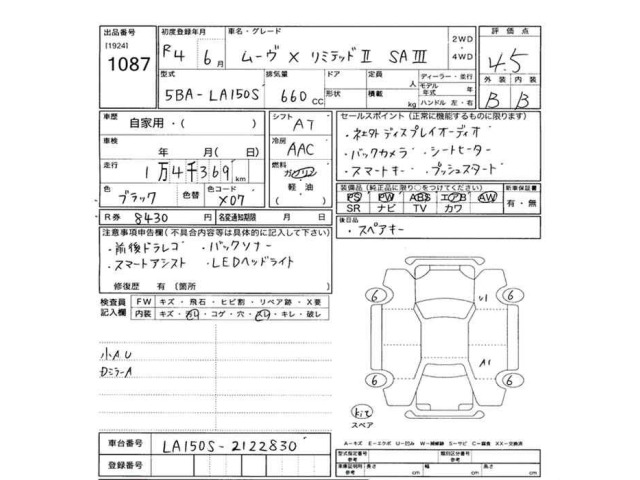 出品番号 初度登録年月 車名・グレード 2WD・4WD 評価点
[1924] R4 6月 ムーヴ X リミテッドⅡ SAⅢ 4.5
1087
型式 排気量 ドア 定員 人 ディーラー・並行 外装 内装
形状 積載 kg モデル年式 年 ハンドル 左・右
5BA-LA150S 660CC B B
車歴 自家用・( ) シフト AT セールスポイント(正常に機能するものに限ります)
・社外ディスプレイオーディオ
車検 年 月( 日) 冷房 AAC ・バックカメラ ・シートヒーター
走行 1万4千369km 燃料 ガソリン 軽油 ( ) ・スマートキー ・プッシュスタート
色 ブラック 色替 色コード X07 装備品(純正品に限り○をつけてください) 新車保証書
PS PW ABS エアB AW 有・無
SR ナビ TV カワ
R券 8430円 名変通知期限 月 日 後日品
・スペアキー
注意事項申告欄(不具合内容等は具体的に記入して下さい)
・前後ドラレコ ・バックソナー
・スマートアシスト ・LEDヘッドライト
修復歴 有 〔箇所 〕
検査員記入欄 FW キズ・飛石・ヒビ割・リペア跡・X要
内装 キズ・汚レ・コゲ・穴・スレ・キレ・破レ
6 6
U1
小AU A1
Dミラー A
6 6
kit
スペア
A-キズ E-エクボ U-凹み W-補修跡 S-サビ C-腐食 XX-交換済
車台番号 LA150S-2122830 型式指定番号 参考 類別区分番号 参考
登録番号 車庫証明用 参考 長さ cm 幅 cm 高さ cm